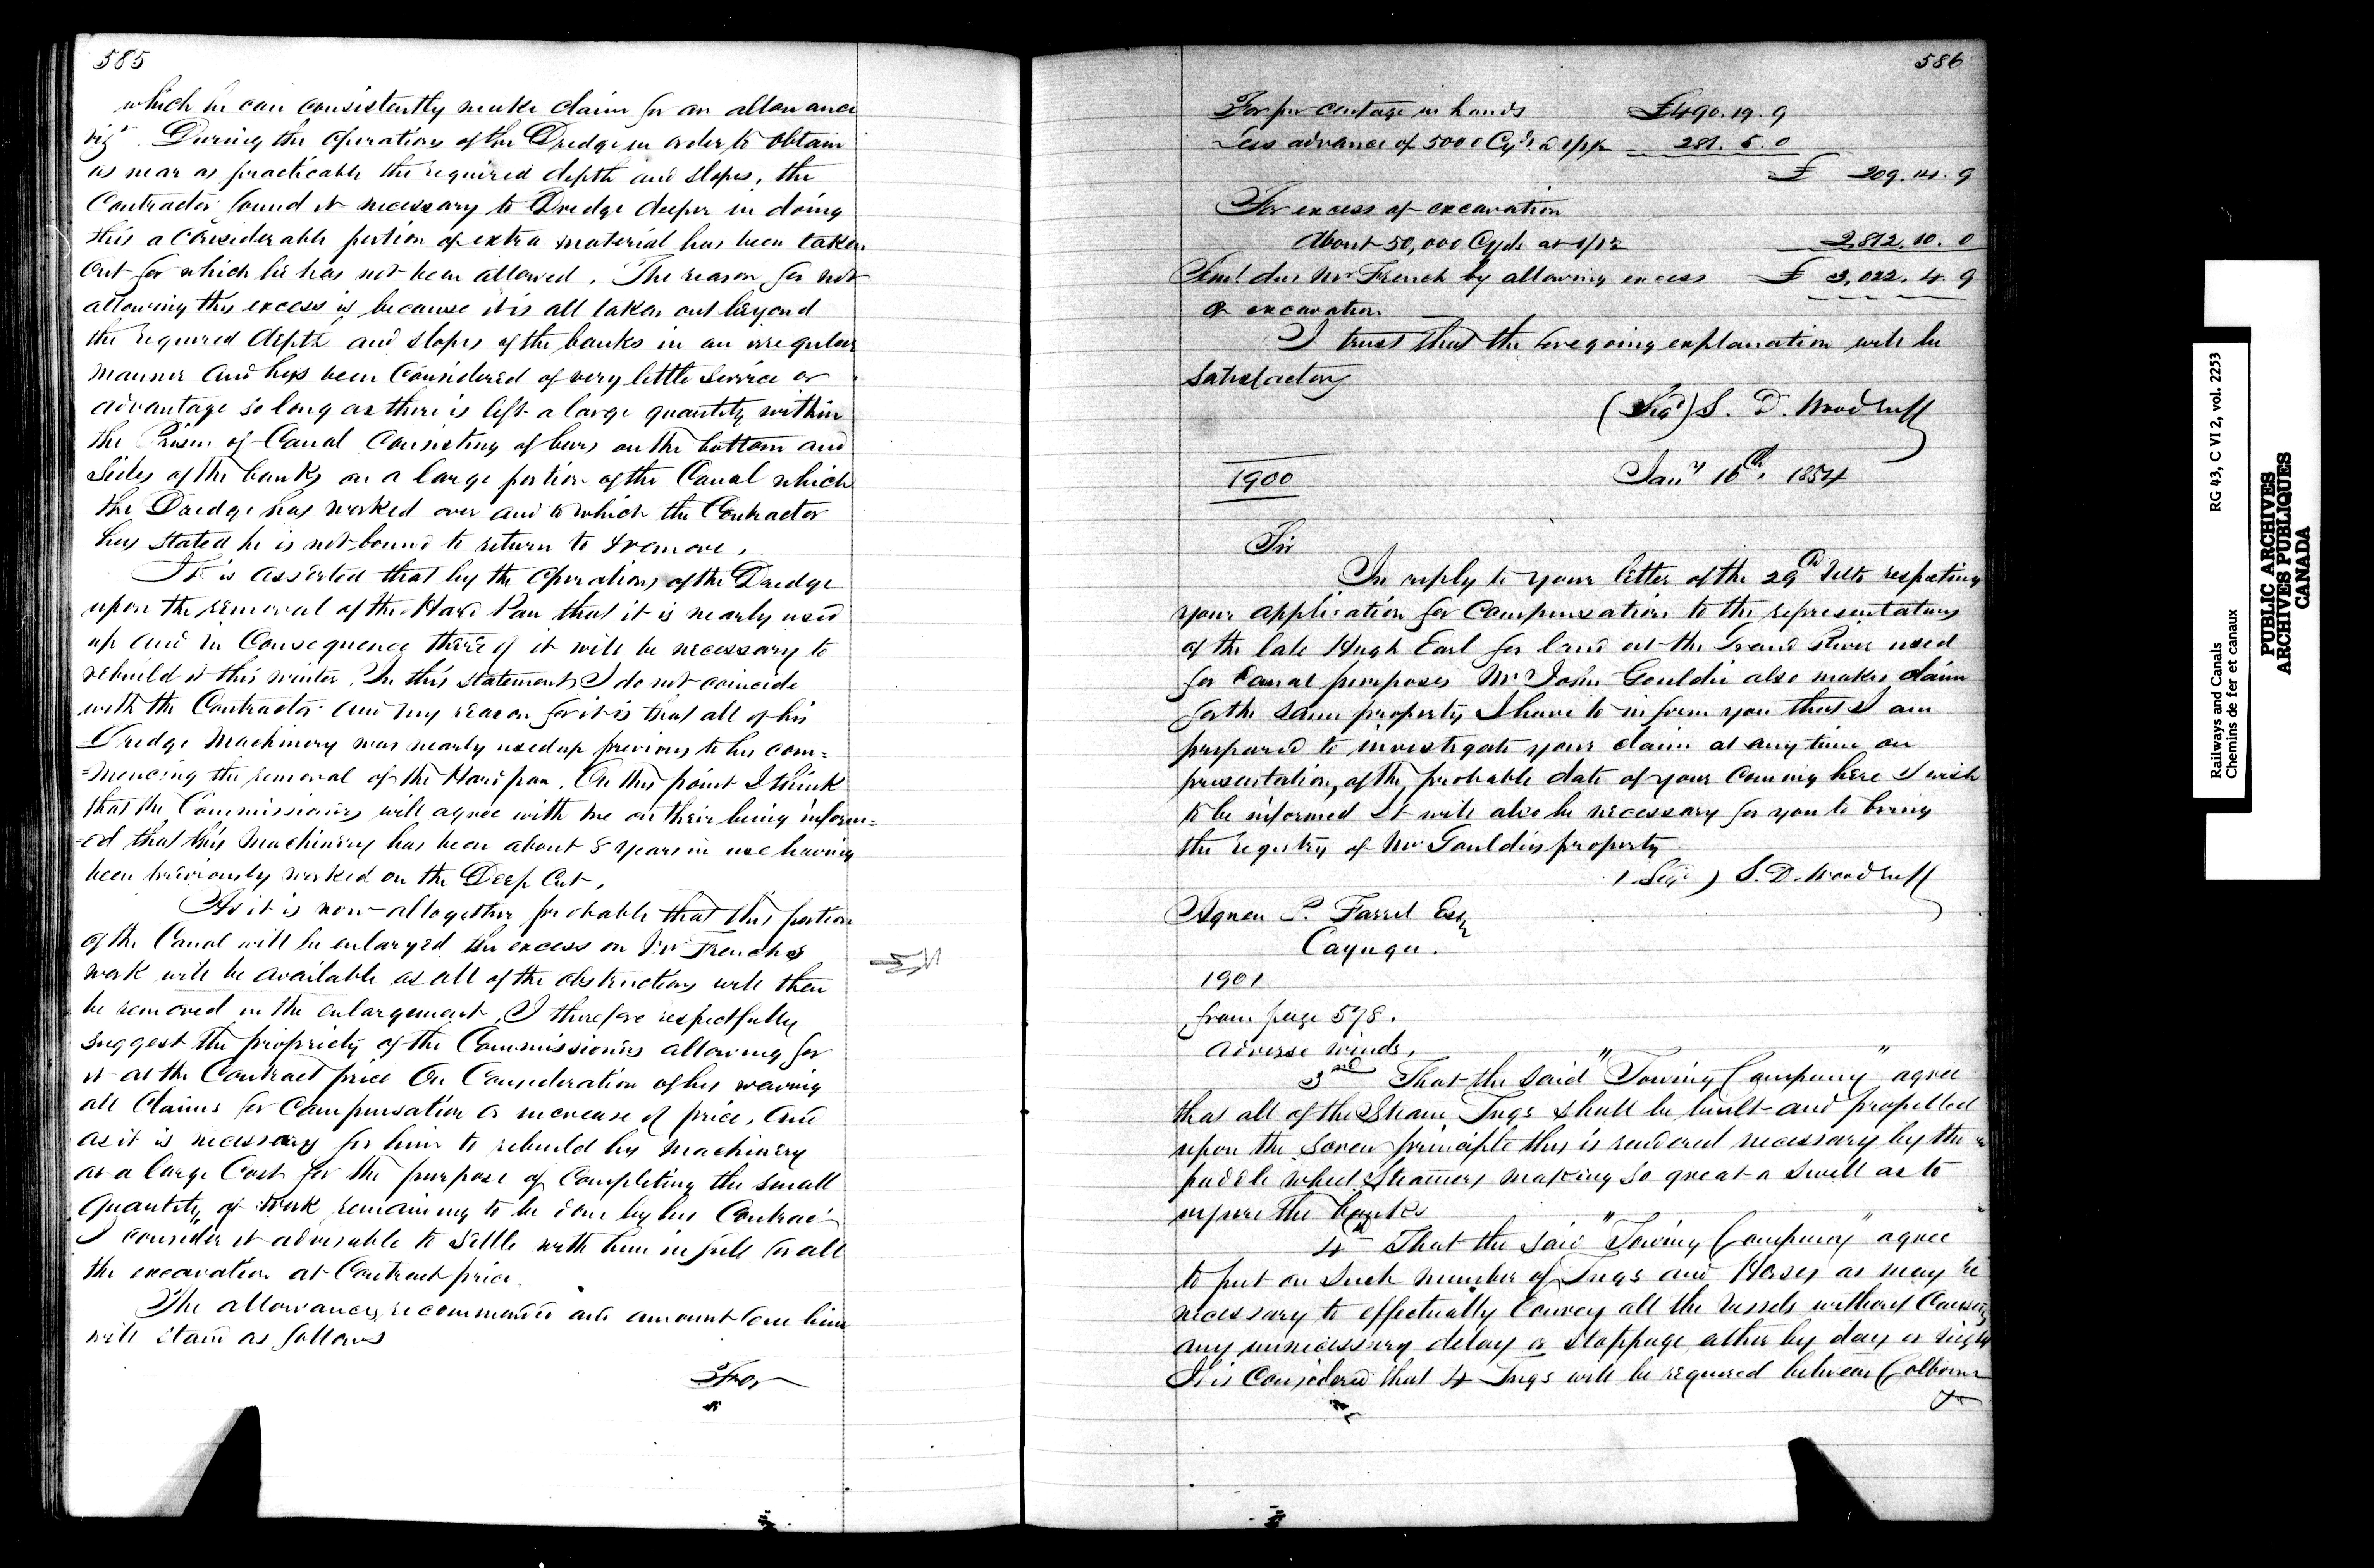 585
which he can consistently make claim for an allowance
viz. During the operations of the Dredge in order to obtain
as near as practicable the required depth and slopes, the
Contractor found it necessary to Dredge deeper in doing
this a considerable portion of extra material has been taken
out for which he has not been allowed. The reason for not
allowing this excess is because it is all taken out beyond
the required depth and slopes of the banks in an irregular
manner and has been considered of very little service or
advantage so long as there is left a large quantity within
the Prism of Canal consisting of bars on the bottom and
sides of the banks on a large portion of the Canal which
the Dredge has worked over and to which the Contractor
has stated he is not bound to return to & remove.
It is asserted that by the operations of the Dredge
upon the removal of the Hard Pan that it is nearly used
up and in Consequence thereof it will be necessary to
rebuild it this winter. In this statement I do not coincide
with the Contractor and my reason for it is that all of his
Dredge Machinery was nearly used up previous to his com=
=mencing the removal of the Hard pan. On this point I think
that the Commissioners will agree with me on their being inform=
=ed that this Machinery has been about 8 years in use having
been previously worked on the Deep Cut.
As it is now altogether probable that this portion
of the Canal will be enlarged the excess on Mr French's
work will be available as all of the obstructions will then
be removed in the enlargement, I therefore respectfully
suggest the propriety of the Commissioners allowing for
it at the Contract price On Consideration of his waving
all Claims for Compensation or increase of price, and
as it is necessary for him to rebuild his machinery
at a large Cost for the purpose of Completing the small
quantity of work remaining to be done by his Contract
I consider it advisable to settle with him in full for all
the excavation at Contract price.
The allowances recommended and amount due him
will stand as follows
For
586
For per centage in hands £490.19.9
Less advance of 5000 Cyds. @ 1/1½ 281.5.0
£ 209.14.9
For excess of excavation
About 50,000 Cyds at 1/1½ 2,812.10.0
Amt. due Mr French by allowing excess £ 3,022.4.9
of excavation
I trust that the foregoing explanation will be
satisfactory
(Sigd) S. D. Woodruff
1900 Jany 16th, 1854
Sir
In reply to your letter of the 29th Ulto respecting
your application for Compensation to the representatives
of the late Hugh Earl for land at the Grand River used
for Canal purposes Mr John Gouldin also makes claim
for the same property I have to inform you that I am
prepared to investigate your claim at any time on
presentation, of the probable date of your Coming here I wish
to be informed It will also be necessary for you to bring
the registry of Mr Gouldin's property
(Sigd) S. D. Woodruff
Agnew P. Farrel Esq
Cayuga.
1901
from page 578.
adverse winds.
3rd That the said "Towing Company" agree
that all of the Steam Tugs shall be built and propelled
upon the screw principle this is rendered necessary by the
paddle wheel Steamers making so great a swell as to
injure the banks
4th That the said "Towing Company" agree
to put on such number of Tugs and Horses as may be
necessary to effectually Convey all the Vessels without Causing
any unnecessary delay or stoppage either by day or night
It is Considered that 4 Tugs will be required between Colborne
Railways and Canals RG 43, C VI 2, vol. 2253
Chemins de fer et canaux
PUBLIC ARCHIVES
ARCHIVES PUBLIQUES
CANADA